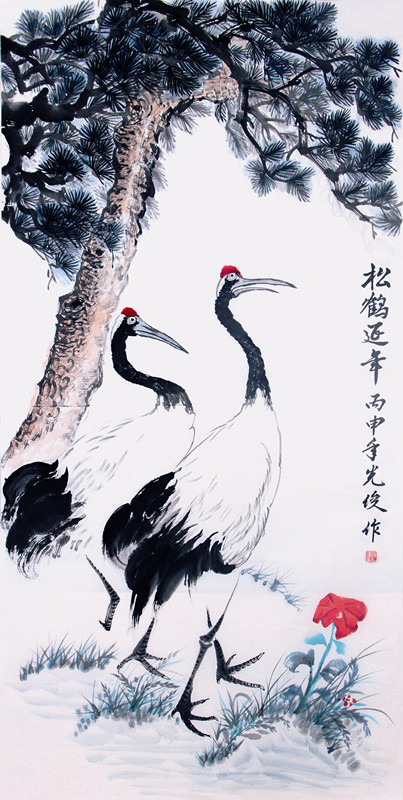 松鹤延年 丙申年光俊作